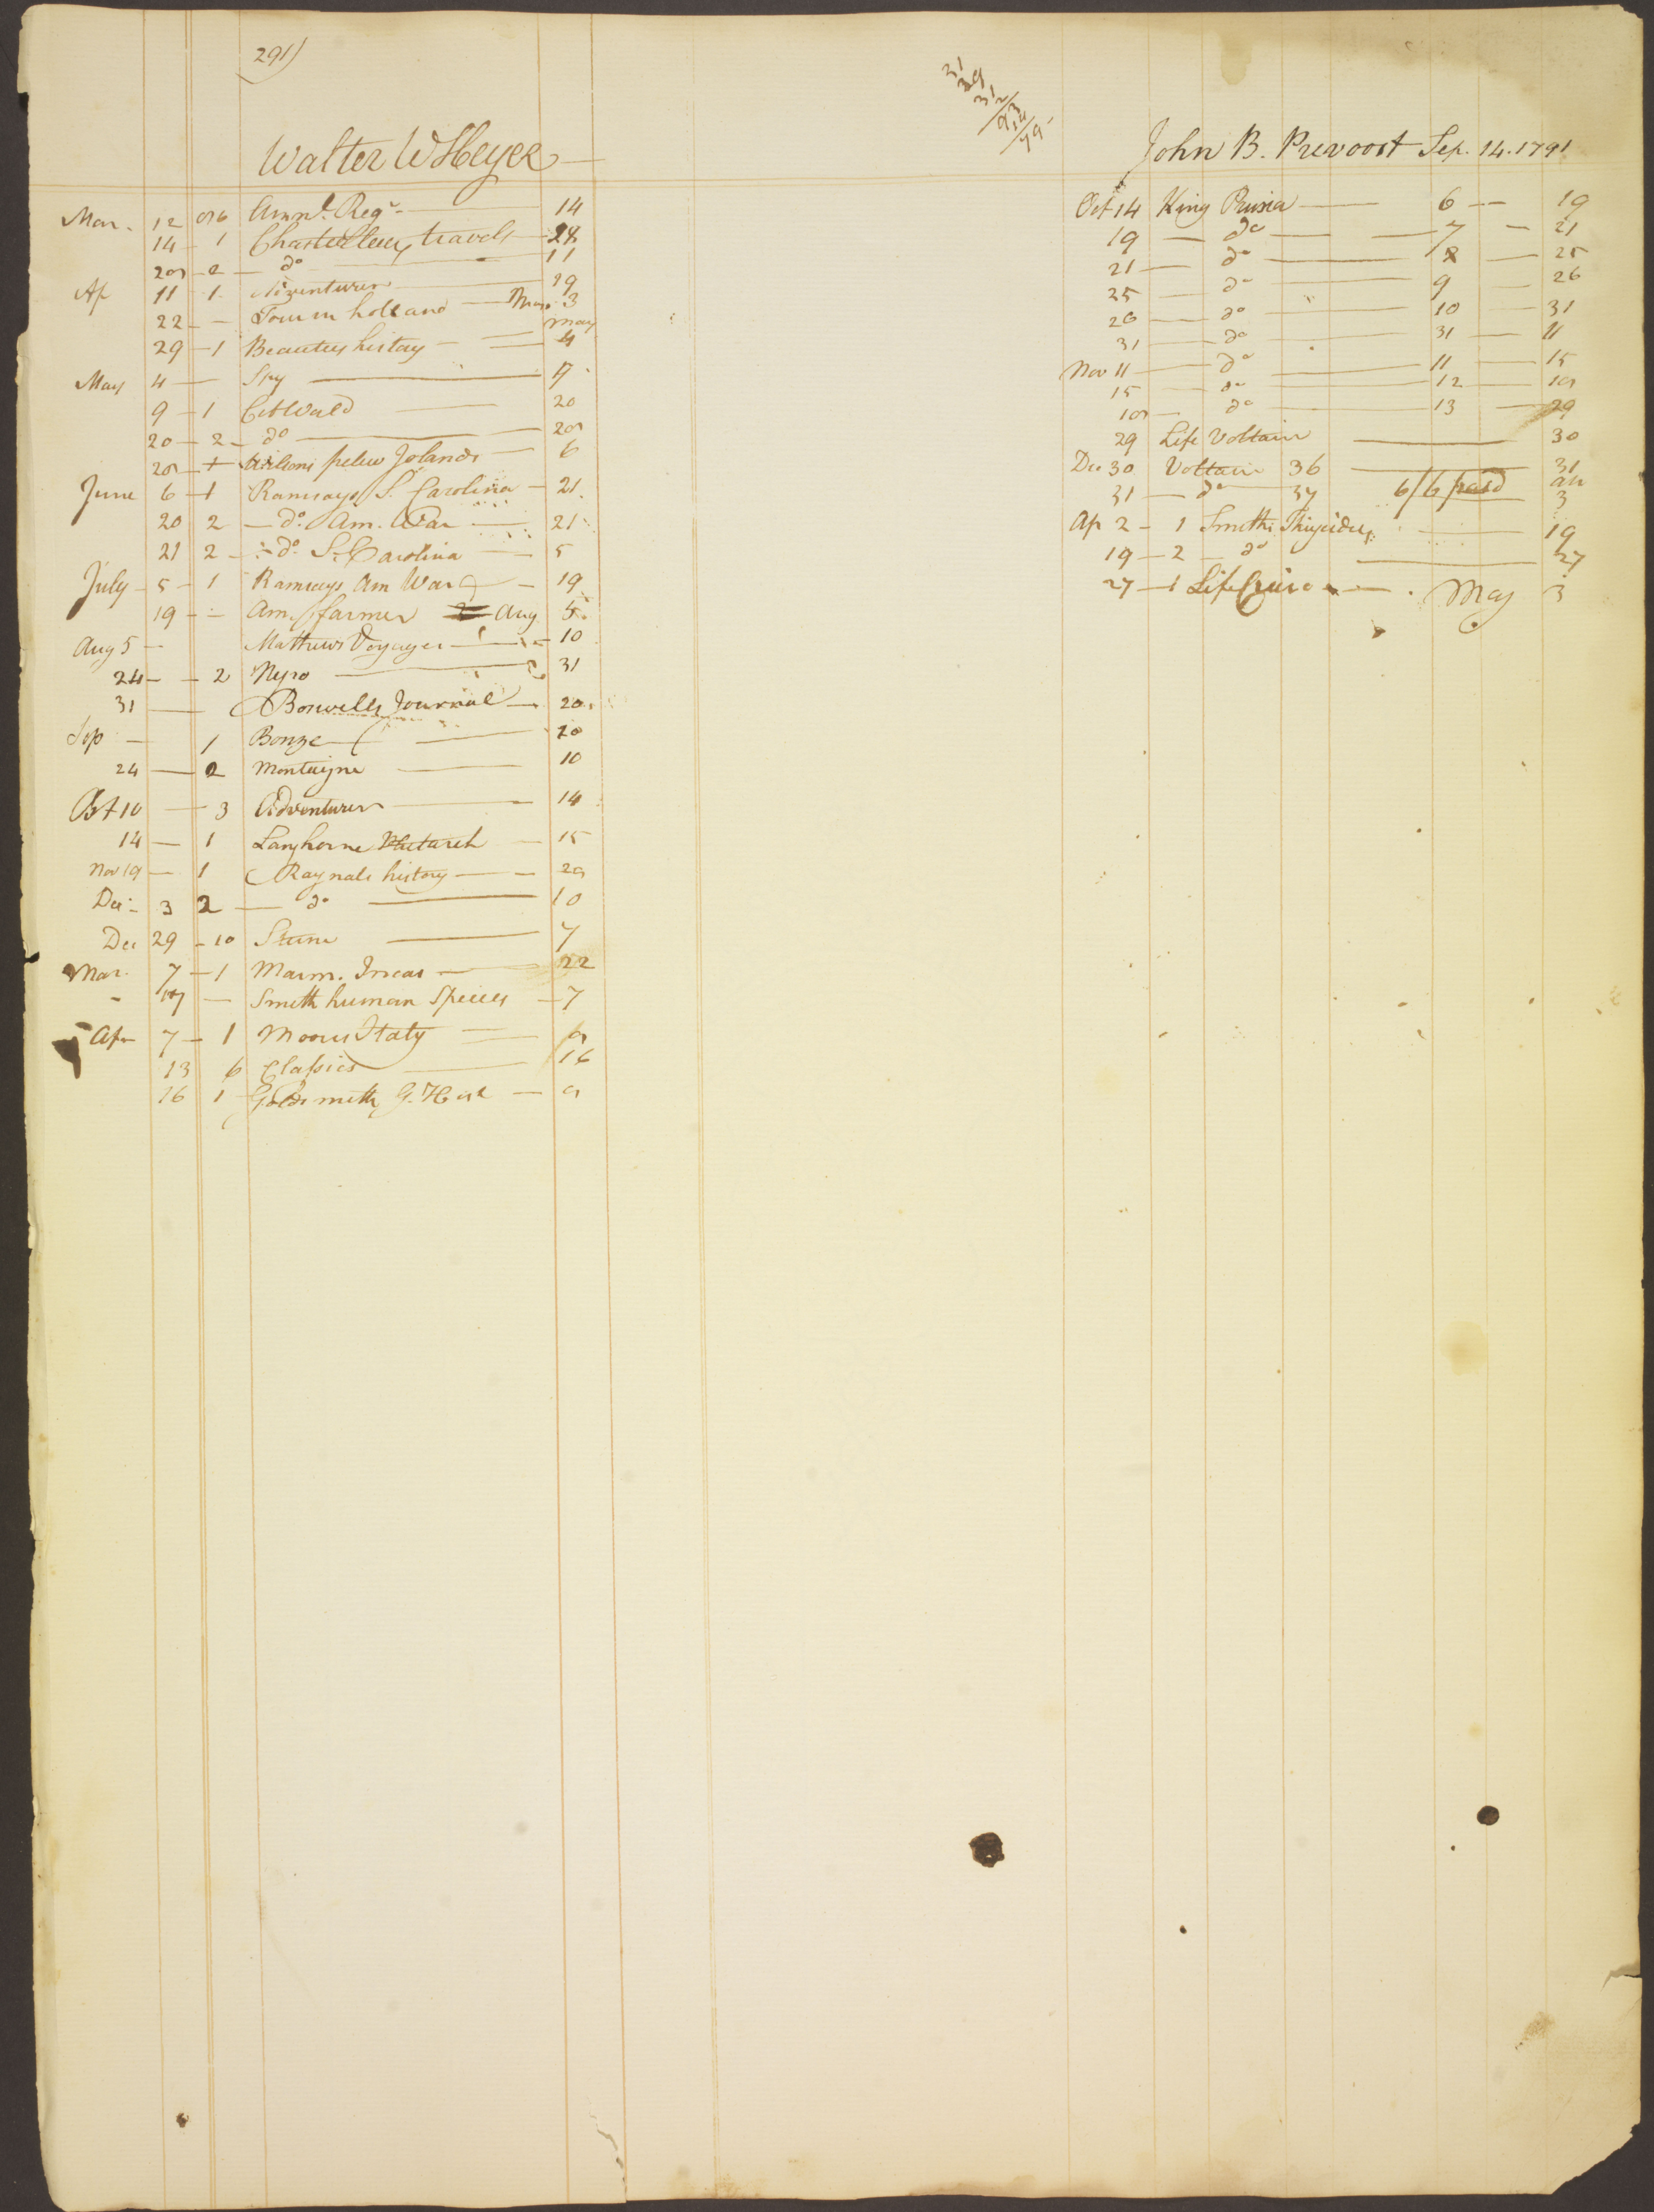 291)
Walter W Heyer
Mar. 12 86 Annl. Regr. 14
14 - 1 Chastelleux travels 28
28 - 2 - do 11
Ap 11 - 1 Adventurer 19
22 - Tour in holland 3
May
29 - 1 Beauties history 4
May 4 - Spy 9
9 - 1 20
20 - 2 - do 28
28 - Wilsons pelew Islands 6
June 6 - 1 Ramsays S. Carolina - 21
20 2 - do. Am. War 21
21 2 - do S. Carolina 5
July - 5 - 1 Ramsays Am War - 19
19 - Am. farmer Aug 5
Aug 5 - Mathews Voyages - 10
24 - 2 Nyro 31
31 Boswells Journal 20
Sep - 1 Bonze 20
24 - 2 Montaigne 10
Oct 10 - 3 Adventurer 14
14 - 1 Langhorne Plutarch - 15
Nov 19 - 1 Raynals history 28
Dec - 3 2 - do 10
Dec 29 - 10 Sterne 7
Mar. 7 - 1 Marm. Incas 22
- 17 - Smith human Species - 7
Apr 7 - 1 Moores Italy 8
13 6 Classics 16
16 1 Goldsmith G. Hist - 8
John B. Prevoost Sep. 14. 1791
Oct 14 King Prusia 6 - 19
19 - do - 7 - 21
21 - do 8 - 25
25 - do 9 - 26
26 - do 10 - 31
31 - do 31 - 11
Nov 11 - do 11 - 15
15 - do 12 - 18
18 - do 13 - 29
29 Life Voltair 30
Dec 30 Voltair 36 31
31 - do 37 6/6 paid 3
Ap 2 - 1 Smiths Thucides 19
19 - 2 - do 27
27 - 1 Life May 3